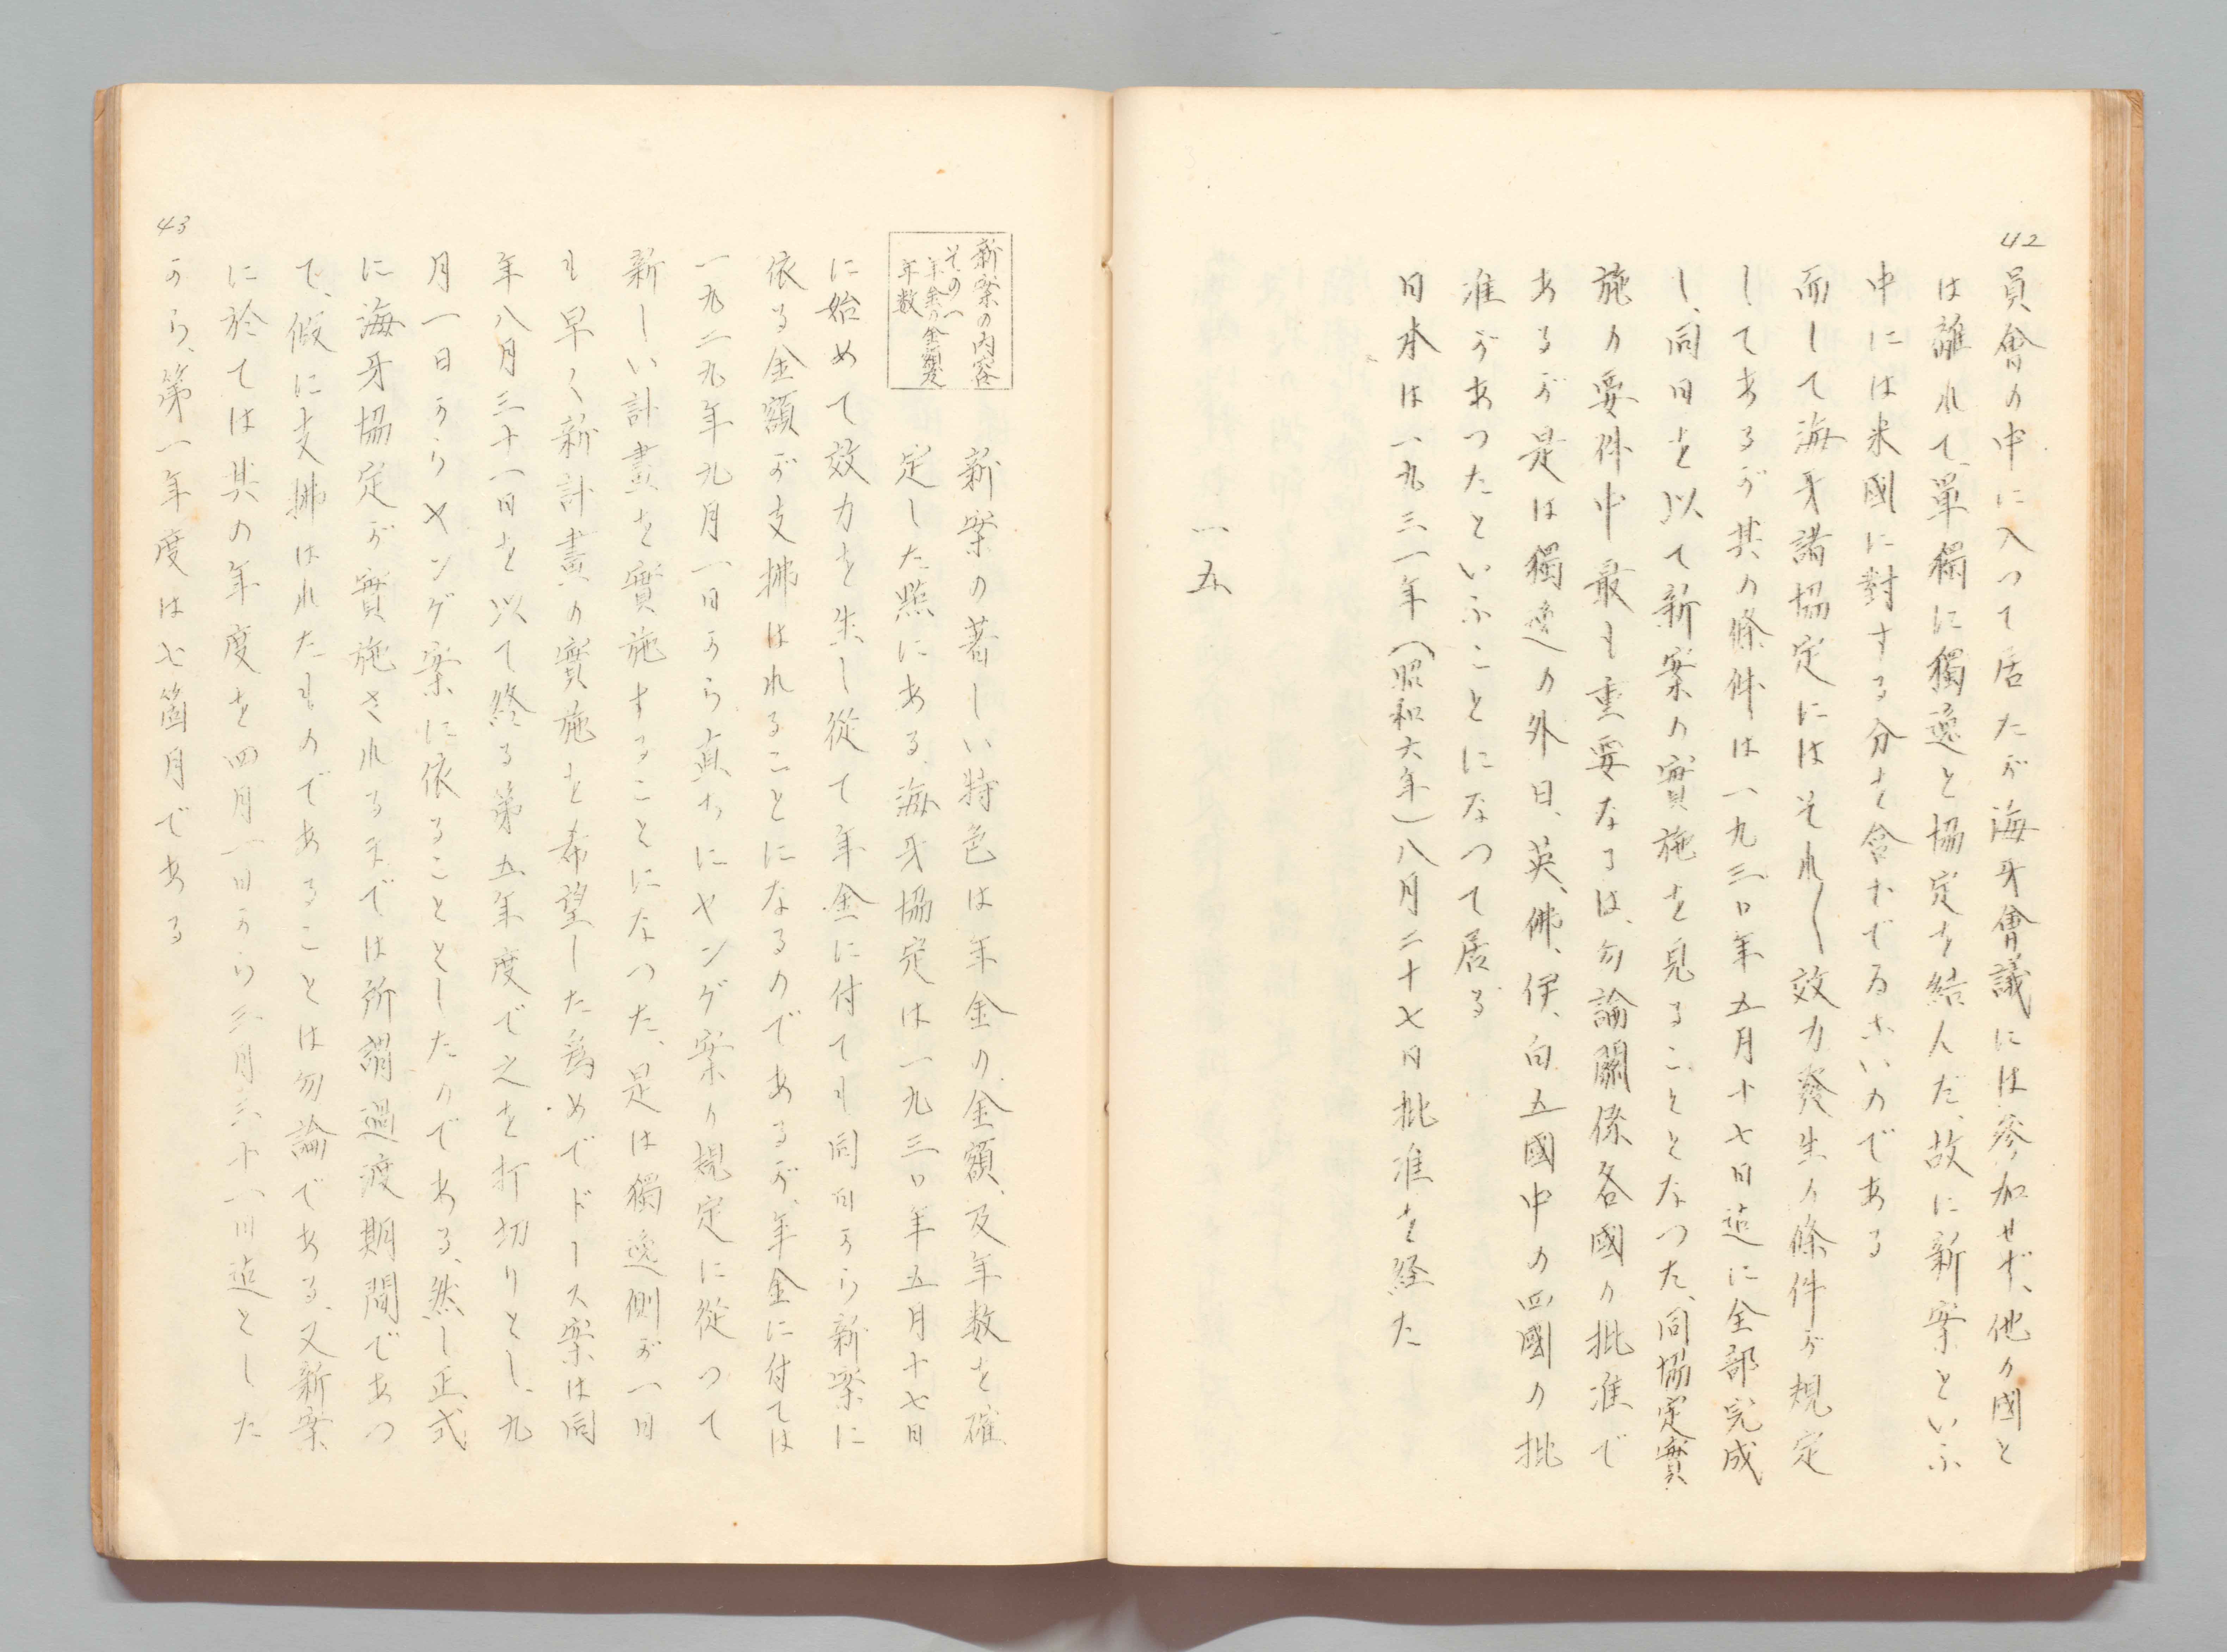 42
員會の中に入つて居たが海牙會議には參加せず、他の國と
は離れて、單獨に獨逸と協定を結んだ、故に新案といふ
中には米國に對する分を含んでゐないのである
而して海牙諸協定にはそれ〱效力發生の條件が規定
してあるが其の條件は一九三〇年五月十七日迄に全部完成
し、同日を以て新案の實施を見ることとなつた、同協定實
施の要件中最も重要なるは、勿論關係各國の批准で
あるが是は獨逸の外日、英、佛、伊、白五國中の四國の批
准があつたといふことになつて居る
日本は一九三一年（昭和六年）八月二十七日批准を経た
一五
新案の内容
その一
年金の金額及
年数
新案の著しい特色は年金の金額、及年数を確
定した點にある、海牙協定は一九三〇年五月十七日
に始めて效力を生じ從て年金に付ても同日から新案に
依る金額が支拂はれることになるのであるが、年金に付ては
一九二九年九月一日から直ちにヤング案の規定に從つて
新しい計畫を實施することになつた、是は獨逸側が一日
も早く新計畫の實施を希望した爲めでドース案は同
年八月三十一日を以て終る第五年度で之を打切りとし、九
月一日からヤング案に依ることとしたのである、然し正式
に海牙協定が實施されるまでは所謂過渡期間であつ
て、假に支拂はれたものであることは勿論である、又新案
に於ては其の年度を四月一日から三月三十一日迄とした
から、第一年度は七箇月である
43